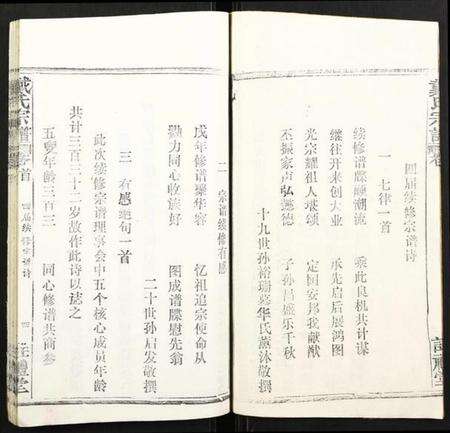 四届续修宗谱诗
一 七律一首
续修谱牒顺潮流 乘此良机共计谋
继往开来创大业 承先启后展鸿图
光宗耀祖人堪颂 定国安邦我献猷
丕振家声弘德 子孙昌盛乐千秋
十九世孙裕瑞基华氏薰沐敬撰
二 宗谱续修有感
戊年修谱操华容 忆祖追宗使命从
勠力同心收族好 图成谱牒慰先翁
二十世孙启发敬撰
三 有感绝句一首
此次续修宗谱理事会中五个核心成员年龄
共计三百三十二岁故作此诗以志之
五叟年龄三百三 同心修谱共商参
戴氏宗谱
卷首
四届续修宗谱诗
四
注礼堂
戴氏宗谱